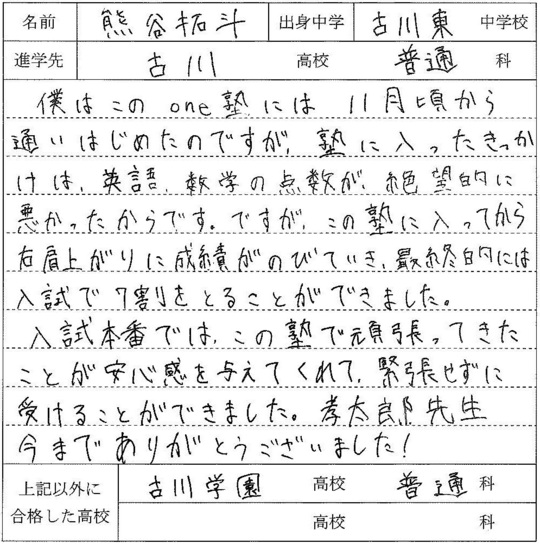 名前 熊谷拓斗 出身中学 古川東 中学校
進学先 古川 高校 普通 科
僕はこのone塾には11月頃から
通いはじめたのですが、塾に入ったきっか
けは、英語、数学の点数が、絶望的に
悪かったからです。ですが、この塾に入ってから
右肩上がりに成績がのびていき、最終的には
入試で7割をとることができました。
入試本番では、この塾で頑張ってきた
ことが安心感を与えてくれて、緊張せずに
受けることができました。孝太郎先生
今までありがとうございました!
上記以外に
合格した高校
古川学園 高校 普通 科
高校 科